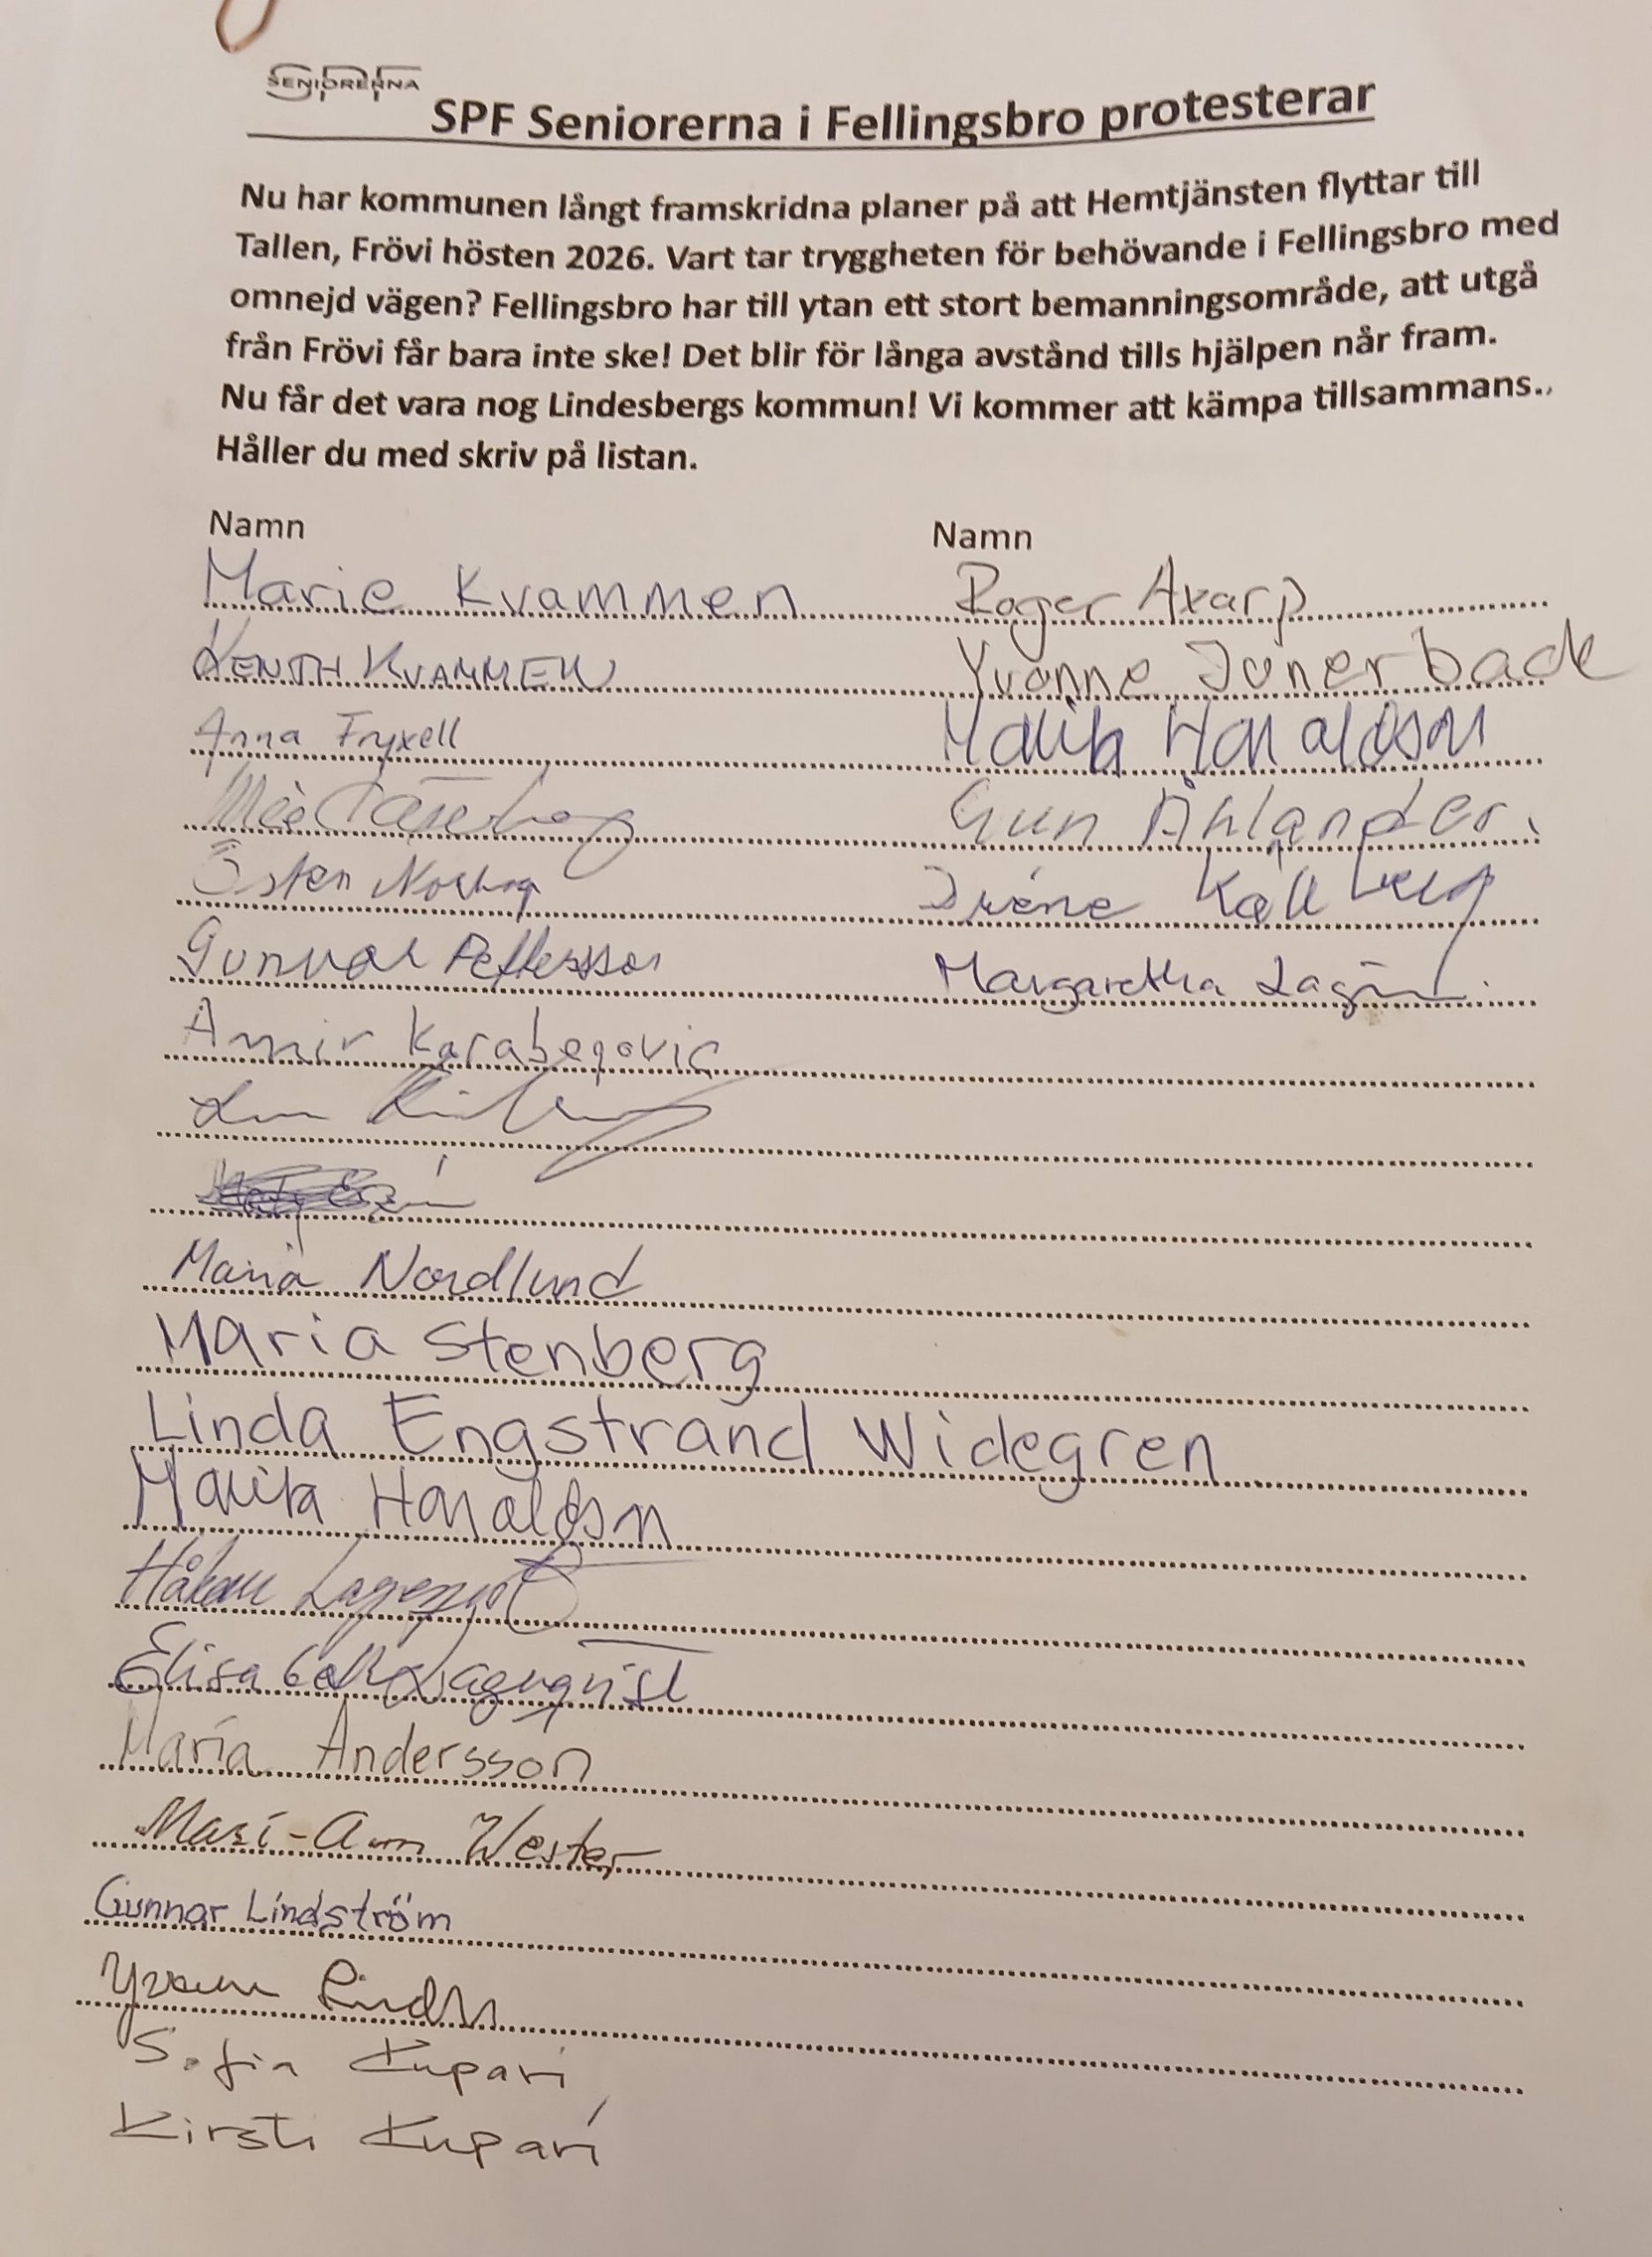 SENIORERNA
SPF Seniorerna i Fellingsbro protesterar
Nu har kommunen långt framskridna planer på att Hemtjänsten flyttar till
Tallen, Frövi hösten 2026. Vart tar tryggheten för behövande i Fellingsbro med
omnejd vägen? Fellingsbro har till ytan ett stort bemanningsområde, att utgå
från Frövi får bara inte ske! Det blir för långa avstånd tills hjälpen når fram.
Nu får det vara nog Lindesbergs kommun! Vi kommer att kämpa tillsammans..
Håller du med skriv på listan.
Namn
Marie Kvammen
KENTH KVAMMEN
Anna Fryxell
Östen
Gunvor Pettersson
Amir Karabegovic
Maria Nordlund
Maria Stenberg
Linda Engstrand Widegren
Marita Haraldson
Håkan
Elisabeth Lagerqvist
Maria Andersson
Mari-Ann Wester
Gunnar Lindström
Sofia Kupari
Kirsti Kupari
Namn
Roger Axarp
Yvonne
Marita Haraldson
Gun Åhlander.
Iréne Källberg
Margaretha